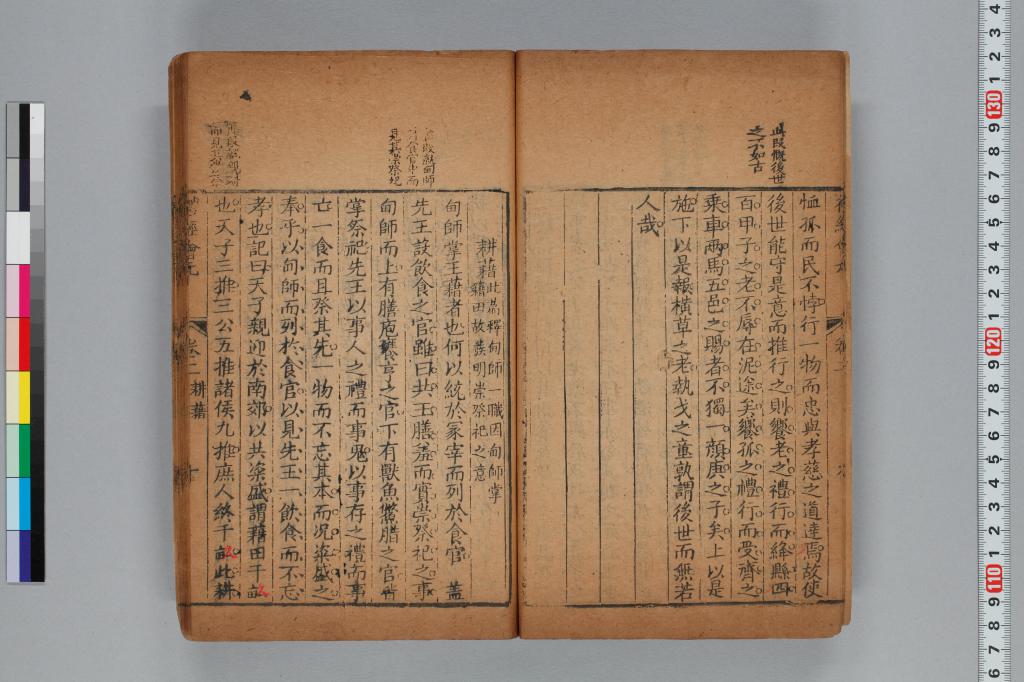 此段慨後世
之不如古
恤孤而民不悖行一物而忠與孝慈之道達焉故使
後世能守是意而推行之則饗老之禮行而絳縣四
百甲子之老不辱在泥塗矣饗孤之禮行而受齊之
乘車兩馬五邑之賜者不獨一顔庚之子矣上以是
施下以是報橫草之老執戈之童孰謂後世而無若
人哉
段敘甸師
食官中而
見其崇祭祀
耕藉
此篇釋甸師一職因甸師掌
藉田故發明崇祭祀之意
甸師掌王藉者也何以統於冢宰而列於食官 蓋
先王設飲食之官雖曰共王膳羞而實崇祭祀之事
甸師而上有膳庖饔亨之官下有獸魚鱉腊之官皆
掌祭祀先王以事人之禮而事鬼以事存之禮而事
亡一食而且祭其先一物而不忘其本而况粢盛之
奉乎以甸師而列於食官以見先王一飲食而不忘
孝也記曰天子親迎於南郊以共粢盛謂藉田千畝
也天子三推三公五推諸侯九推庶人終千畝此耕
卷二 耕藉
十